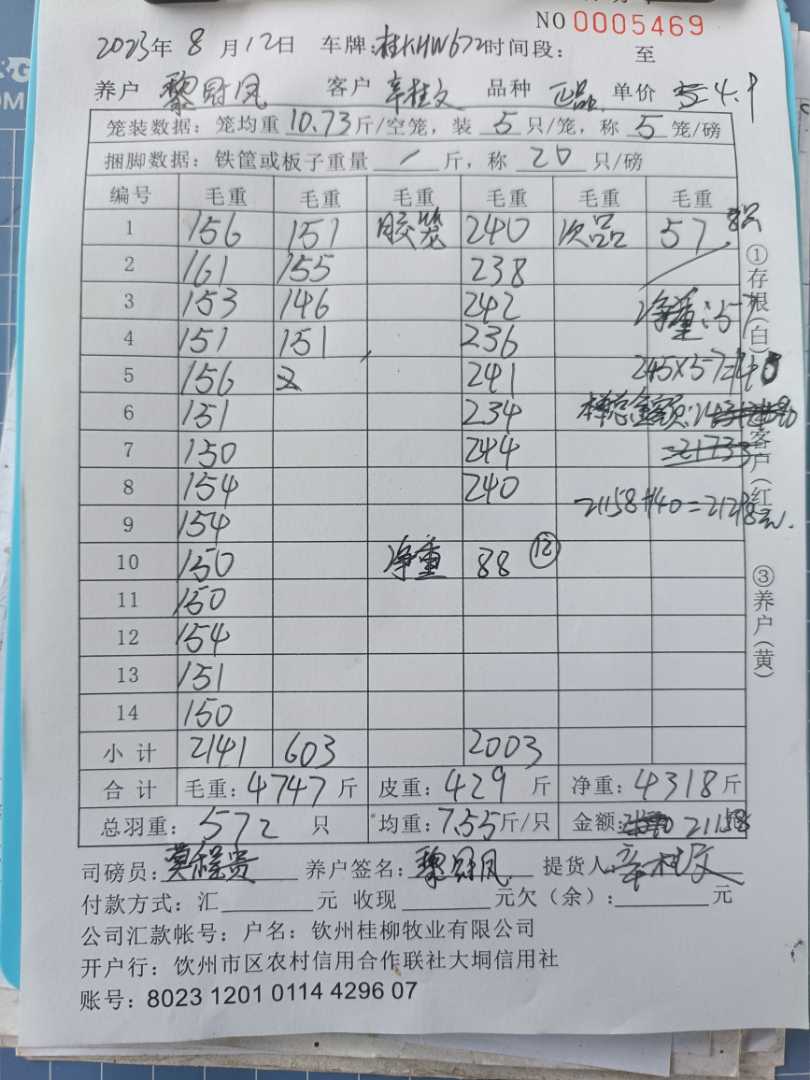 NO 0005469
2023年 8 月 12日 车牌:桂KHW672 时间段: 至
养户 黎冠凤 客户 辛桂文 品种 正品 单价 4.9
笼装数据: 笼均重 10.73 斤/空笼, 装 5 只/笼, 称 5 笼/磅
捆脚数据: 铁筐或板子重量 / 斤, 称 20 只/磅
编号 毛重 毛重 毛重 毛重 毛重 毛重
1 156 151 胶笼 240 次品 57 8只
2 161 155 238
3 153 146 242 净重:57
4 151 151 236
5 156 241 245×57=140
6 151 234 总金额:
7 150 244 =21733
8 154 240 21158+140=21298元.
9 154
10 150 净重 88 ⑫
11 150
12 154
13 151
14 150
小计 2141 603 2003
合计 毛重: 4747 斤 皮重: 429 斤 净重: 4318 斤
总羽重: 572 只 均重: 7.55 斤/只 金额: 21158
司磅员: 莫程贵 养户签名: 黎冠凤 提货人 辛桂文
付款方式: 汇 元 收现 元欠(余): 元
公司汇款帐号: 户名: 钦州桂柳牧业有限公司
开户行: 钦州市区农村信用合作联社大垌信用社
账号: 8023 1201 0114 4296 07
①存根(白)
客户(红
③养户(黄)